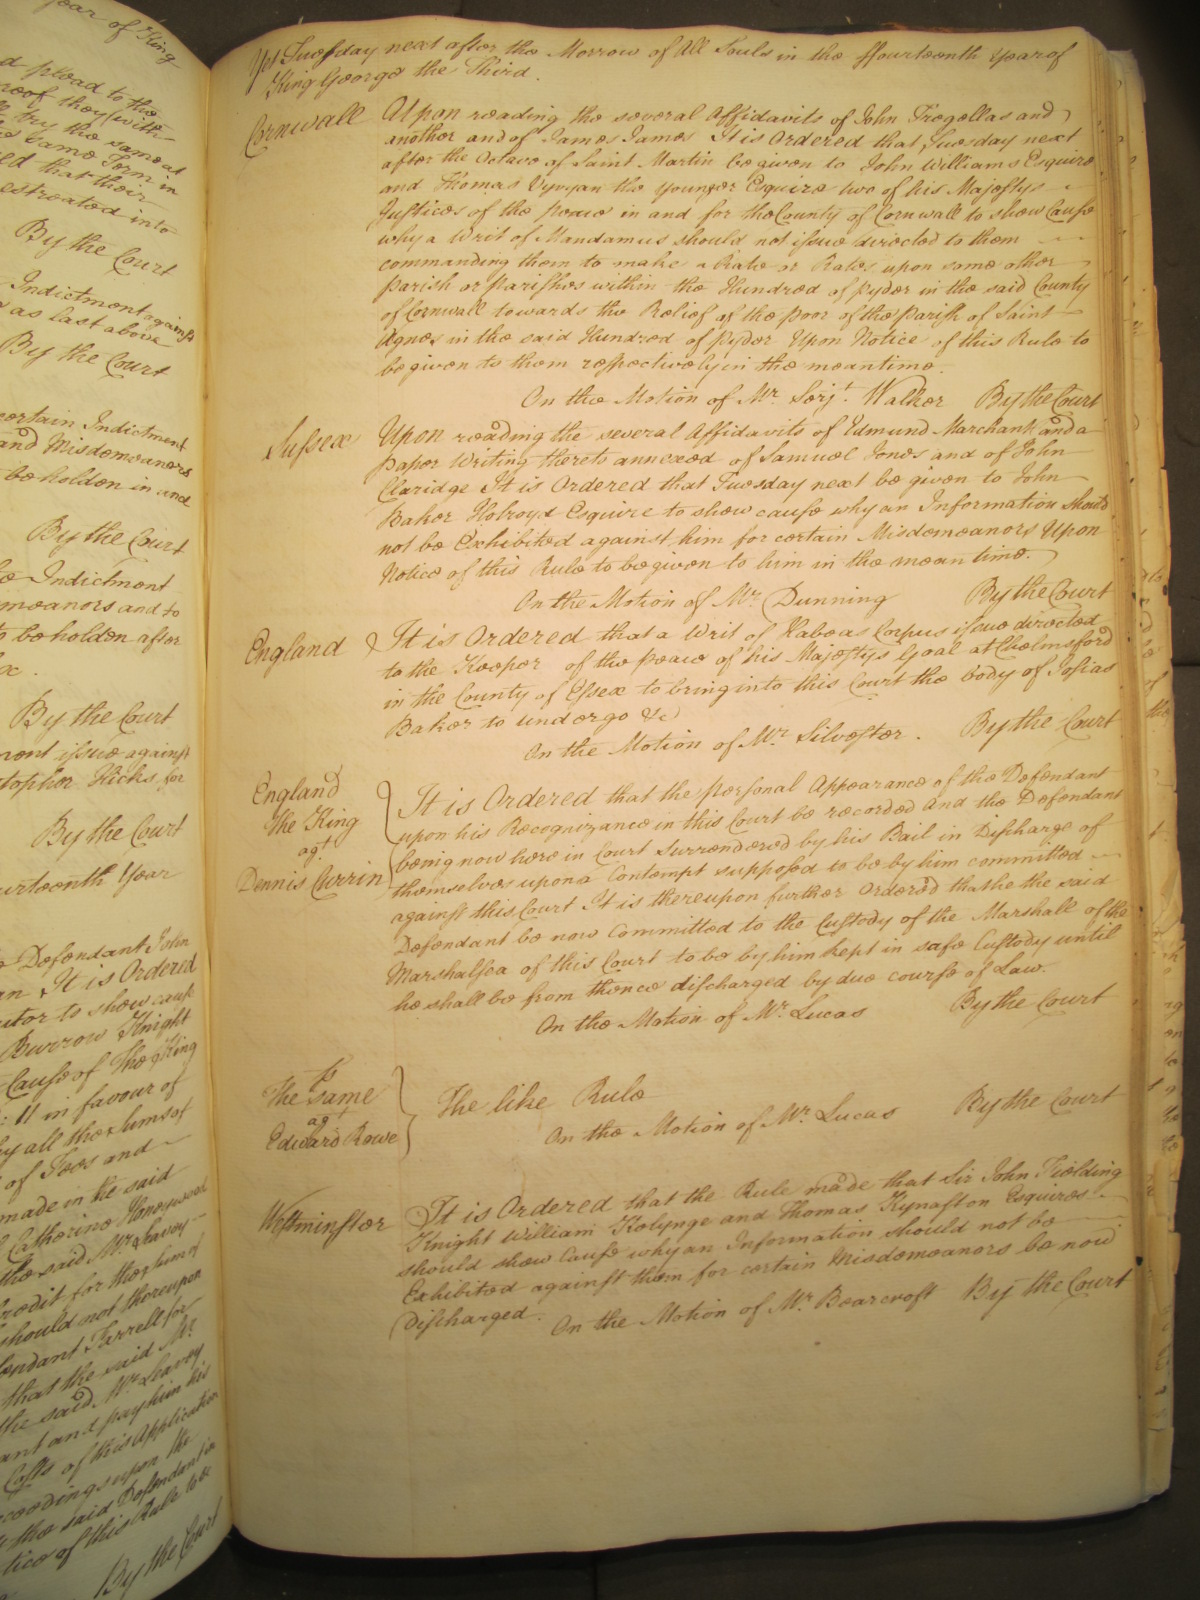 year of King
d plead to the
roof they with
try the same at
same Term in
ed that their
estreated into
By the Court
Indictment against
as last above
By the Court
certain Indictment
and Misdemeanors
be holden in and
By the Court
Indictment
meanors and to
to be holden after
By the Court
ment issue against
topher Hicks for
By the Court
urteenth Year
Defendant John
an It is Ordered
utor to show cause
Burrow Knight
Cause of The King
11 in favour of
by all the sums of
of Fees and
made in the said
Catherine
the said Mr
Credit for the sum of
should not thereupon
fendant Farrell for
that the said Mr
the said Mr Leavey
ant and pay him his
Costs of this Application
ceedings upon the
the said Defendant in
tice of this Rule to be
By the Court
Yet Tuesday next after the Morrow of All Souls in the ffourteenth Year of
King George the Third.
Cornwall Upon reading the several Affidavits of John Tregellas and
another and of James James It is Ordered that Tuesday next
after the Octave of Saint Martin be given to John Williams Esquire
and Thomas Vyvyan the younger Esquire two of his Majestys
Justices of the peace in and for the County of Cornwall to shew Cause
why a Writ of Mandamus should not issue directed to them
commanding them to make a Rate or Rates upon some other
parish or parishes within the Hundred of Pyder in the said County
of Cornwall towards the Relief of the poor of the Parish of Saint
Agnes in the said Hundred of Pyder Upon Notice of this Rule to
be given to them respectively in the meantime.
On the Motion of Mr. Serjt. Walker By the Court
Sussex Upon reading the several Affidavits of Edmund Marchant and a
paper Writing thereto annexed of Samuel Jones and of John
Claridge It is Ordered that Tuesday next be given to John
Baker Holroyd Esquire to shew cause why an Information should
not be Exhibited against him for certain Misdemeanors Upon
Notice of this Rule to be given to him in the mean time.
On the Motion of Mr. Dunning By the Court
England It is Ordered that a Writ of Habeas Corpus issue directed
to the Keeper of the peace of his Majestys Goal at Chelmsford
in the County of Essex to bring into this Court the body of Josias
Baker to undergo &c
On the Motion of Mr. Silvester. By the Court
England
The King
agt.
Dennis Currin
It is Ordered that the personal Appearance of the Defendant
upon his Recognizance in this Court be recorded And the Defendant
being now here in Court Surrendered by his Bail in Discharge of
themselves upon a Contempt supposed to be by him committed
against this Court It is thereupon further Ordered that he the said
Defendant be now Committed to the Custody of the Marshall of the
Marshalsea of this Court to be by him kept in safe Custody until
he shall be from thence discharged by due course of Law.
On the Motion of Mr. Lucas By the Court
The Same
agt
Edward Rowe
The like Rule
On the Motion of Mr. Lucas By the Court
Westminster It is Ordered that the Rule made that Sir John Fielding
Knight William Kelynge and Thomas Kynaston Esquires
should shew Cause why an Information should not be
Exhibited against them for certain Misdemeanors be now
Discharged.
On the Motion of Mr. Bearcroft By the Court